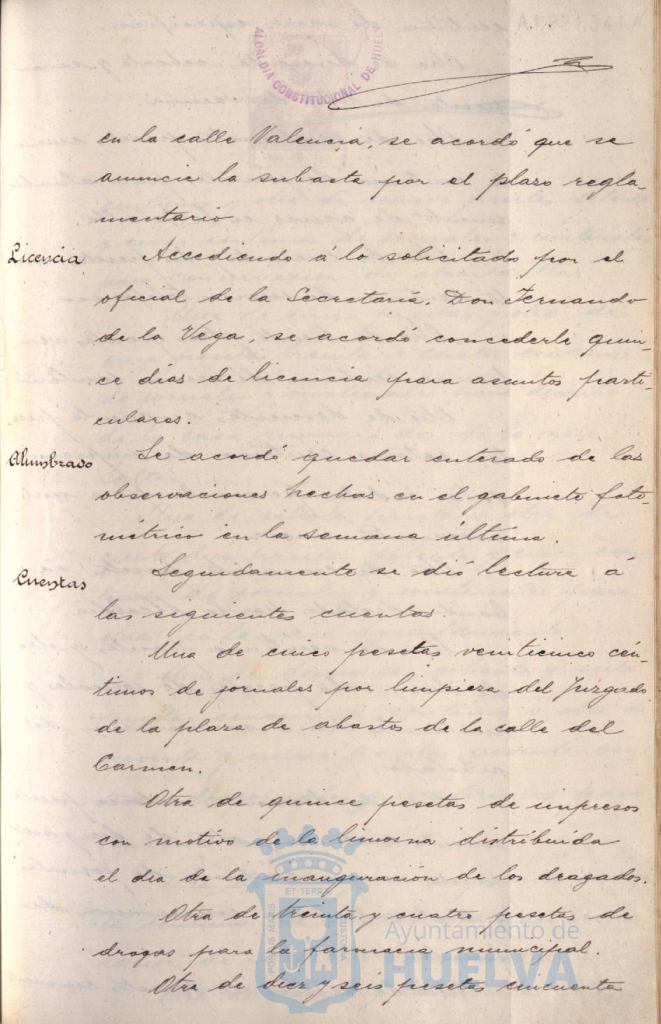 ALCALDÍA CONSTITUCIONAL DE HUELVA
en la calle Valencia, se acordó que se
anuncie la subasta por el plazo regla-
mentario
Licencia
Accediendo á lo solicitado por el
oficial de la Secretaría, Don Fernando
de la Vega, se acordó concederle quin-
ce días de licencia para asuntos parti-
culares.
Alumbrado
Se acordó quedar enterado de las
observaciones hechas en el gabinete foto-
métrico en la semana última.
Cuentas
Seguidamente se dió lectura á
las siguientes cuentas.
Una de cinco pesetas veinticinco cén-
timos de jornales por limpieza del Juzgado
de la plaza de abastos de la calle del
Carmen.
Otra de quince pesetas de impresos
con motivo de la limosna distribuida
el dia de la inauguración de los dragados.
Otra de treinta y cuatro pesetas de
drogas para la farmacia municipal.
Otra de diez y seis pesetas cincuenta
PORTUS MARIS ET TERRE CUSTODIA
Ayuntamiento de
HUELVA